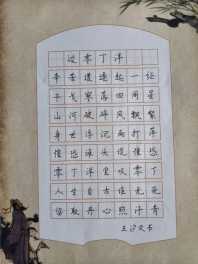 过零丁洋
辛苦遭逢起一经
干戈寥落四周星
山河破碎风飘絮
身世浮沉雨打萍
惶恐滩头说惶恐
零丁洋里叹零丁
人生自古谁无死
留取丹心照汗青
王汐文书